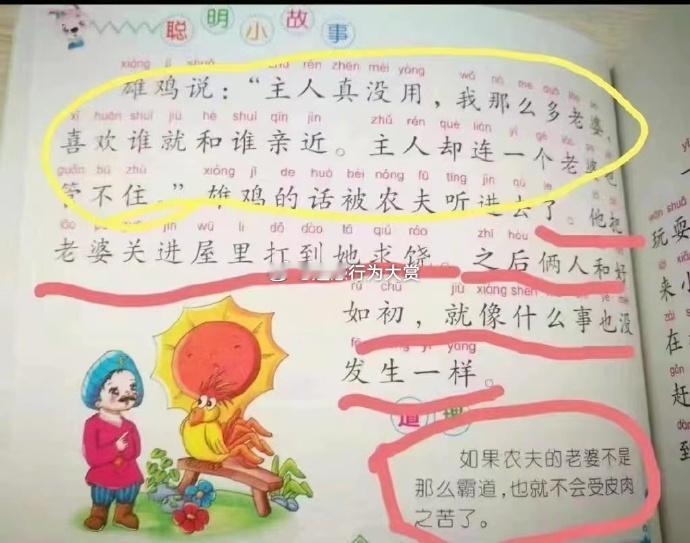 聪明小故事
xióng jī shuō zhǔ rén zhēn méi yòng
雄鸡说：“主人真没用，我那么多老婆，
xǐ huān shuí jiù hé shuí qīn jìn zhǔ rén què lián yí gè lǎo
喜欢谁就和谁亲近。主人却连一个老婆也
guǎn bú zhù xióng jī de huà bèi nóng fū tīng jìn qù le
管不住。”雄鸡的话被农夫听进去了。他把
lǎo pó guān jìn wū lǐ dǎ dào tā qiú ráo zhī hòu
老婆关进屋里打到她求饶。之后俩人和好
行为大赏
rú chū jiù xiàng shén
如初，就像什么事也没
fā shēng yí yàng
发生一样。
道理
如果农夫的老婆不是
那么霸道，也就不会受皮肉
之苦了。
wán shuǎ
玩耍
来小
zài
在
gǎn
赶
dào
到